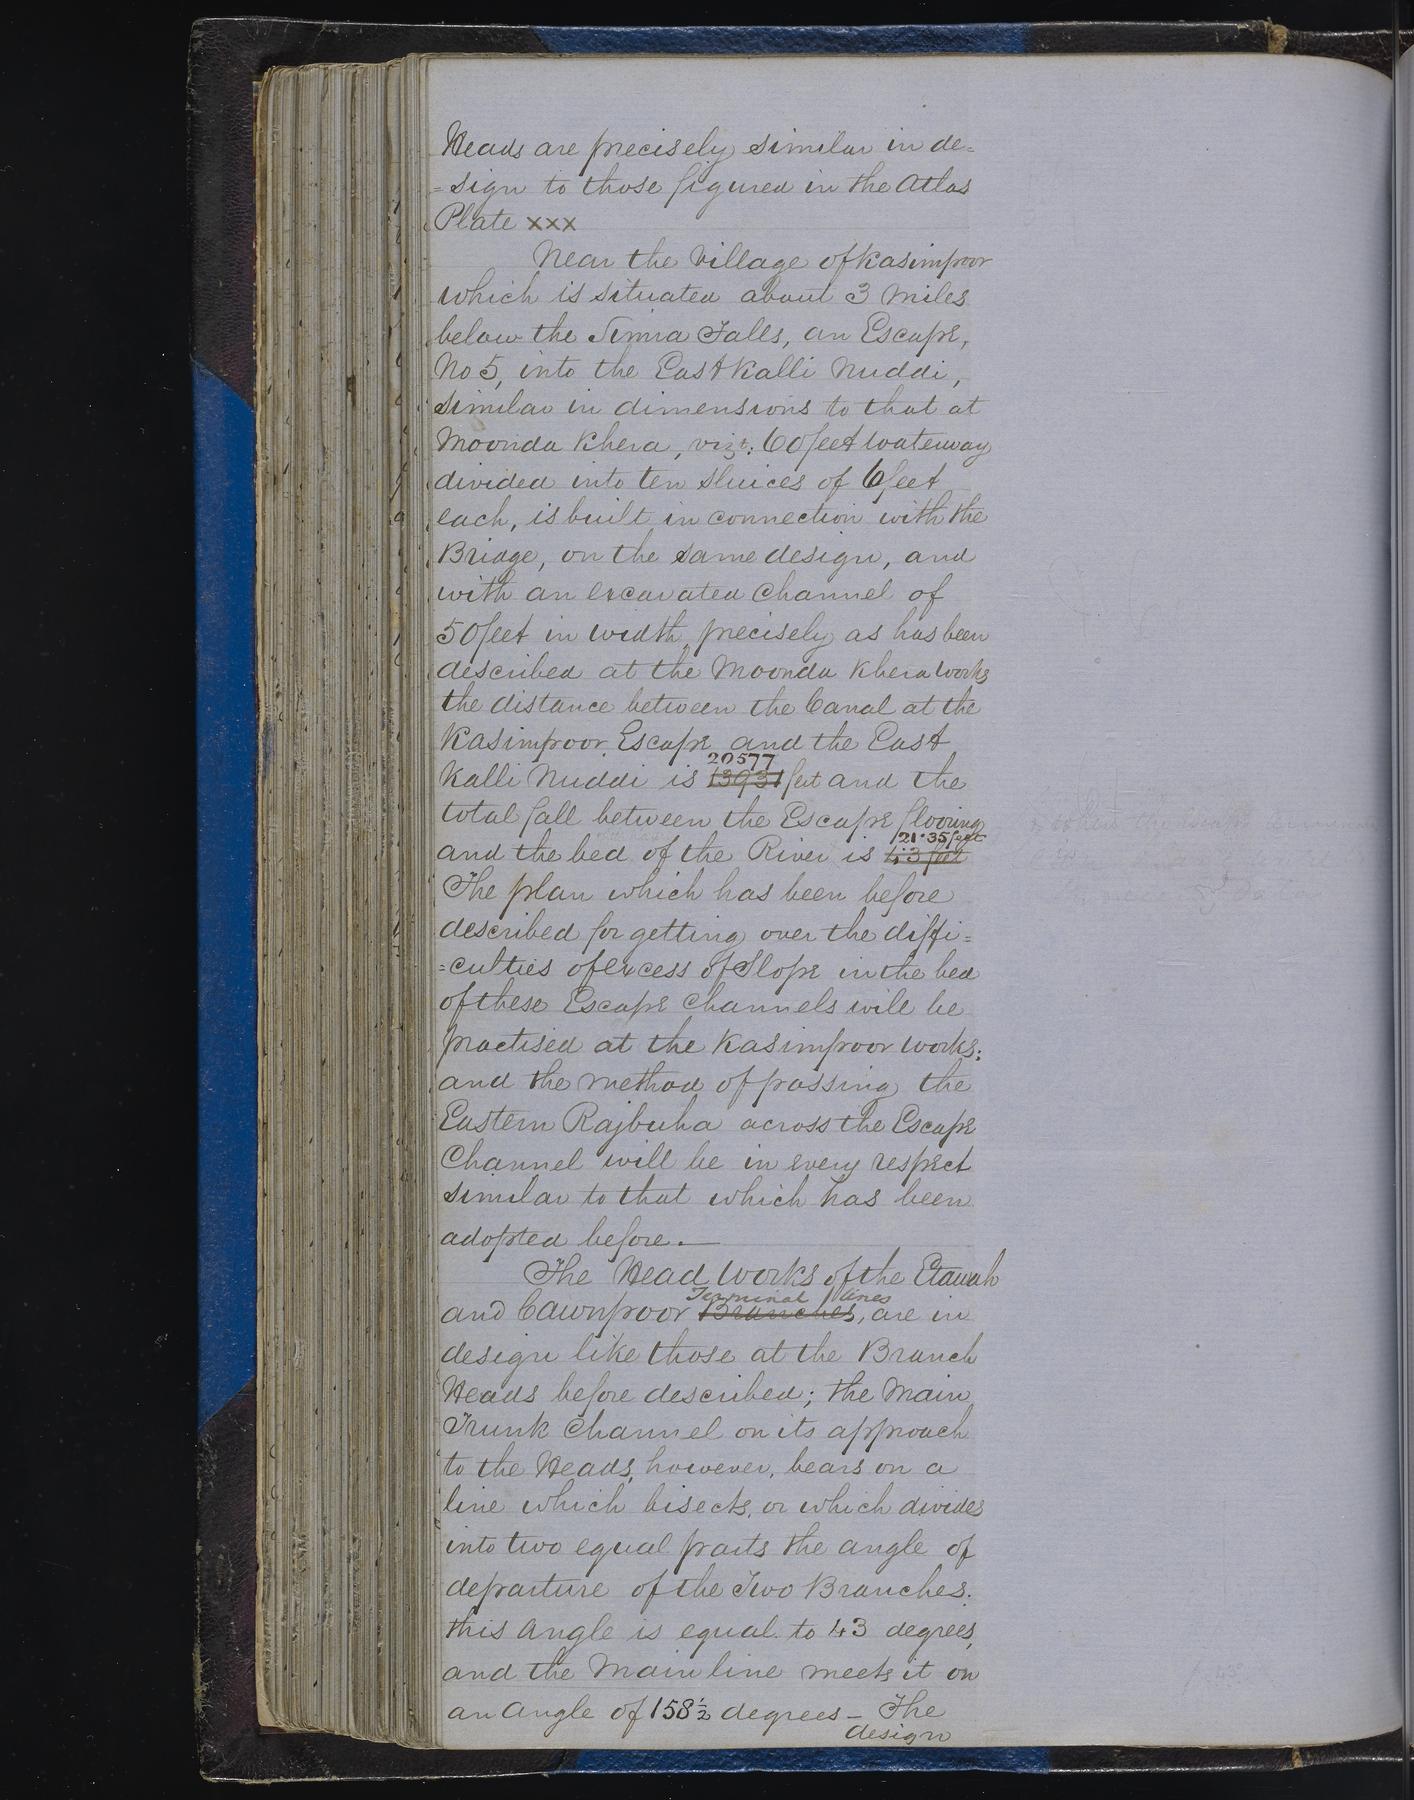 Heads are precisely similar in de=
=sign to those figured in the Atlas
Plate xxx
Near the Village of Kasimpoor
which is situated about 3 Miles
below the Simra Falls, an Escape,
No 5, into the East Kalli Nuddi,
similar in dimensions to that at
Moonda Khera, vizt: 60 feet waterway
divided into ten sluices of 6 feet
each, is built in connection with the
Bridge, on the same design, and
with an excavated Channel of
50 feet in width precisely as has been
described at the Moonda Khera Works
the distance between the Canal at the
Kasimpoor Escape and the East
20577
Kalli Nuddi is 13931 feet and the
total fall between the Escape flooring
21.35 feet
and the bed of the River is 43 feet
The plan which has been before
described for getting over the diffi=
=culties of excess of Slope in the bed
of these Escape Channels will be
practised at the Kasimpoor Works:
and the method of passing the
Eastern Rajbuha across the Escape
Channel will be in every respect
similar to that which has been
adopted before.—
The Head Works of the Etawah
Terminal lines
and Cawnpoor Branches, are in
design like those at the Branch
Heads before described; the Main
Trunk Channel on its approach
to the Heads, however, bears on a
line which bisects, or which divides
into two equal parts the angle of
departure of the Two Branches.
this Angle is equal to 43 degrees,
and the Main line meets it on
an Angle of 158½ degrees — The
design